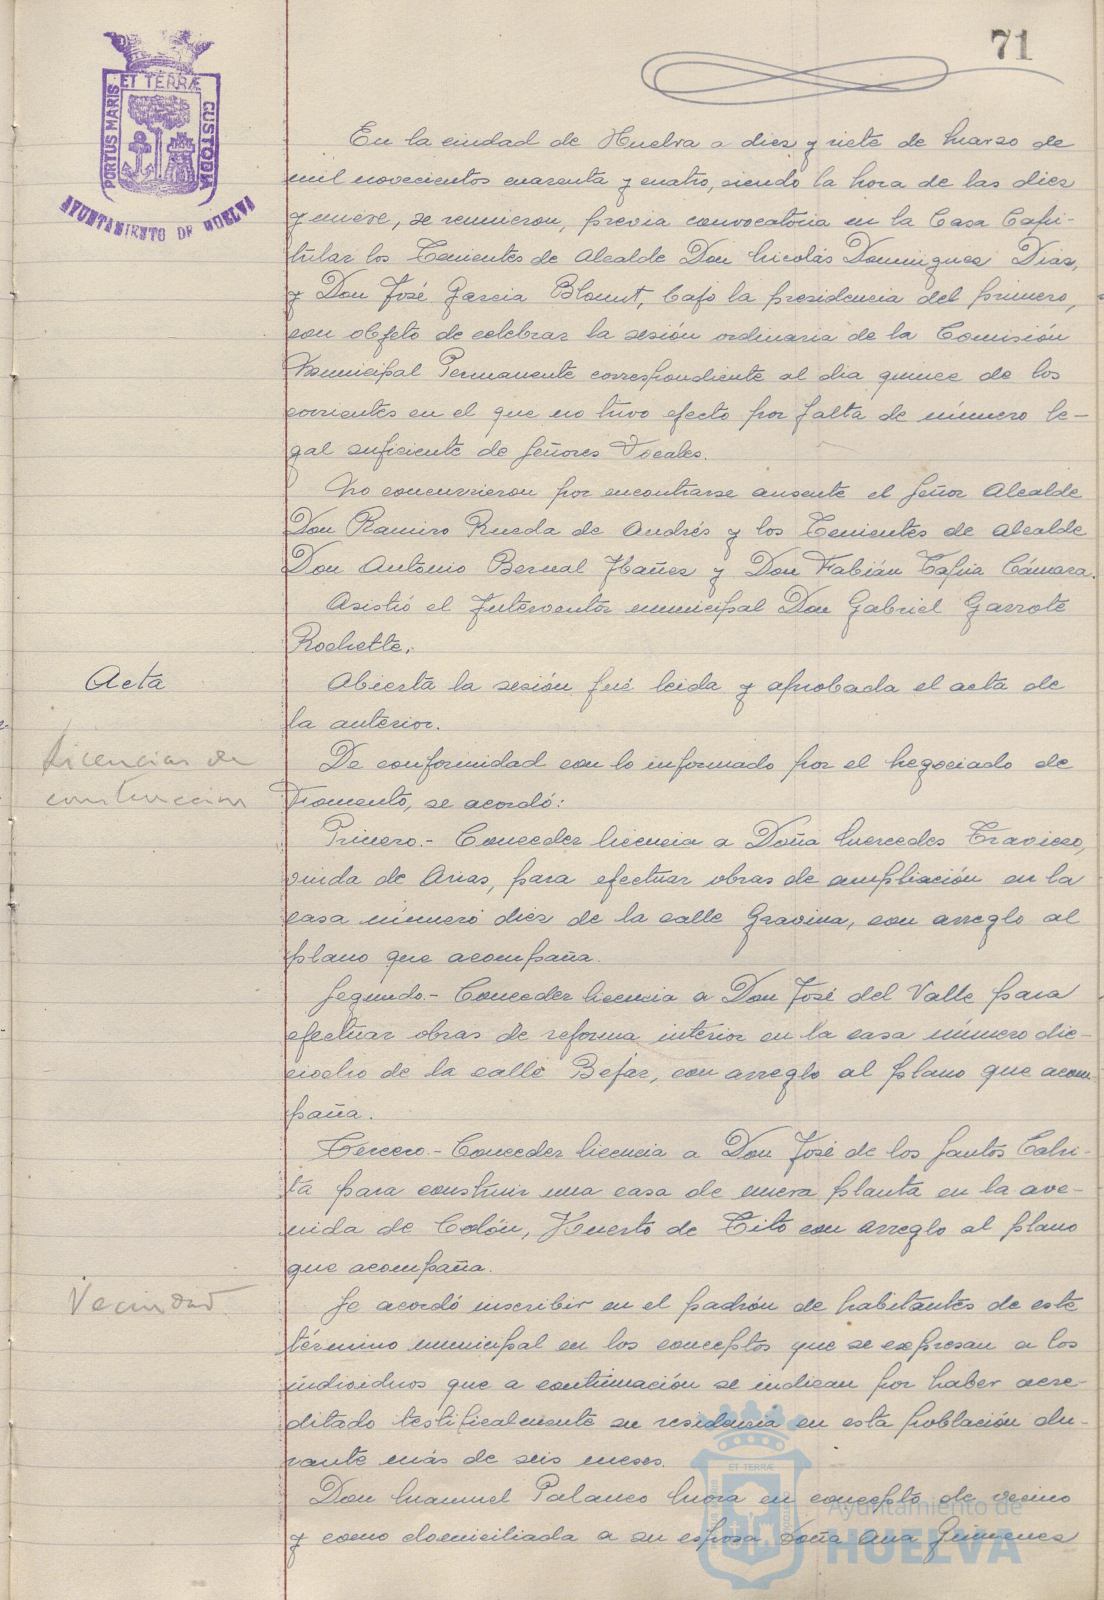 71
PORTUS MARIS ET TERRÆ CUSTODIA
AYUNTAMIENTO DE HUELVA
En la ciudad de Huelva a diez y siete de Marzo de
mil novecientos cuarenta y cuatro, siendo la hora de las diez
y nueve, se reunieron, previa convocatoria en la Casa Capi-
tular los Tenientes de Alcalde Don Nicolás Dominguez Diaz,
y Don José Garcia Blount, bajo la presidencia del primero,
con objeto de celebrar la sesión ordinaria de la Comisión
Municipal Permanente correspondiente al dia quince de los
corrientes en el que no tuvo efecto por falta de número le-
gal suficiente de Señores Vocales.
No concurrieron por encontrarse ausente el Señor Alcalde
Don Ramiro Rueda de Andrés y los Tenientes de Alcalde
Don Antonio Bernal Ibañez y Don Fabián Tapia Cámara.
Asistió el Interventor municipal Don Gabriel Garrote
Rochette.
Acta
Abierta la sesión fué leida y aprobada el acta de
la anterior.
Licencias de
construccion
De conformidad con lo informado por el Negociado de
Fomento, se acordó:
Primero.- Conceder licencia a Doña Mercedes Travieso,
viuda de Arias, para efectuar obras de ampliación en la
casa número diez de la calle Gravina, con arreglo al
plano que acompaña.
Segundo.- Conceder licencia a Don José del Valle para
efectuar obras de reforma interior en la casa número die-
ciocho de la calle Bejar, con arreglo al plano que acom
paña.
Tercero.- Conceder licencia a Don José de los Santos Cabi-
ta para construir una casa de nueva planta en la ave-
nida de Colón, Huerto de Tito con arreglo al plano
que acompaña.
Vecindad
Se acordó inscribir en el padrón de habitantes de este
término municipal en los conceptos que se expresan a los
individuos que a continuación se indican por haber acre-
ditado testificalmente su residencia en esta población du-
rante más de seis meses.
Don Manuel Palanco Mora en concepto de vecino
y como domiciliada a su esposa Doña Ana Gimenez
Ayuntamiento de
HUELVA